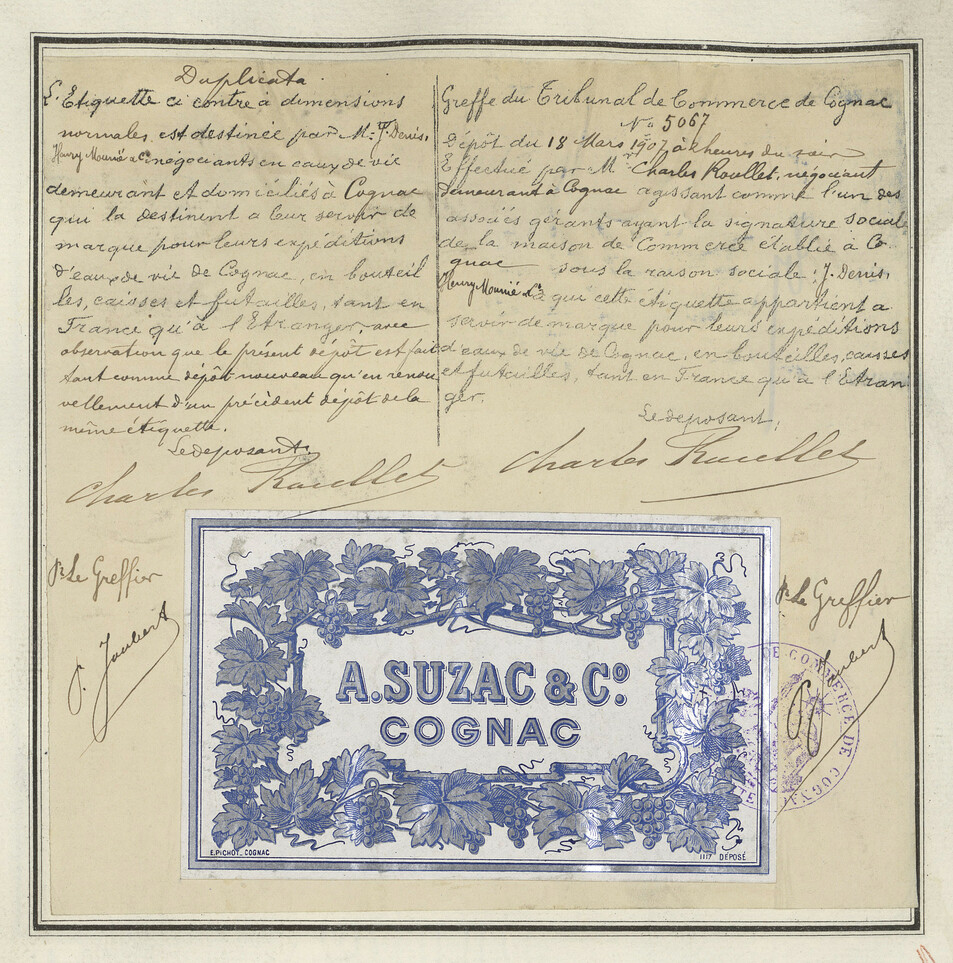 Duplicata
L'Etiquette ci contre à dimensions
normales, est destinée par M. J. Denis,
Henry Mounié & Co négociants en eaux de vie
demeurant et domiciliés à Cognac
qui la destinent a leur servir de
marque pour leurs expéditions
d'eaux de vie de Cognac, en bouteil
les, caisses et futailles, tant en
France qu'à l'Etranger, avec
observation que le présent dépôt est fait
tant comme dépôt nouveau qu'en renou
vellement d'un précédent dépôt de la
même étiquette.
Le deposant.
Charles Roullet
Greffe du Tribunal de Commerce de Cognac
No 5067
Dépôt du 18 Mars 1907 à heures du soir
Effectué par M Charles Roullet, négociant
demeurant à Cognac agissant comme l'un des
associés gérants ayant la signature sociale
de la maison de Commerce établie à Co
gnac sous la raison sociale: J. Denis,
Henry Mounié & Co à qui cette étiquette appartient a
servir de marque pour leurs expéditions
d'eaux de vie de Cognac, en bouteilles, caisses
et futailles, tant en France qu'à l'Etran
ger.
Le deposant,
Charles Roullet
Pr Le Greffier
P. Joubert
Pr Le Greffier
Joubert
A. SUZAC & Co.
COGNAC
E. PICHOT_COGNAC
1117 DÉPOSÉ
DE COMMERCE DE COGNAC